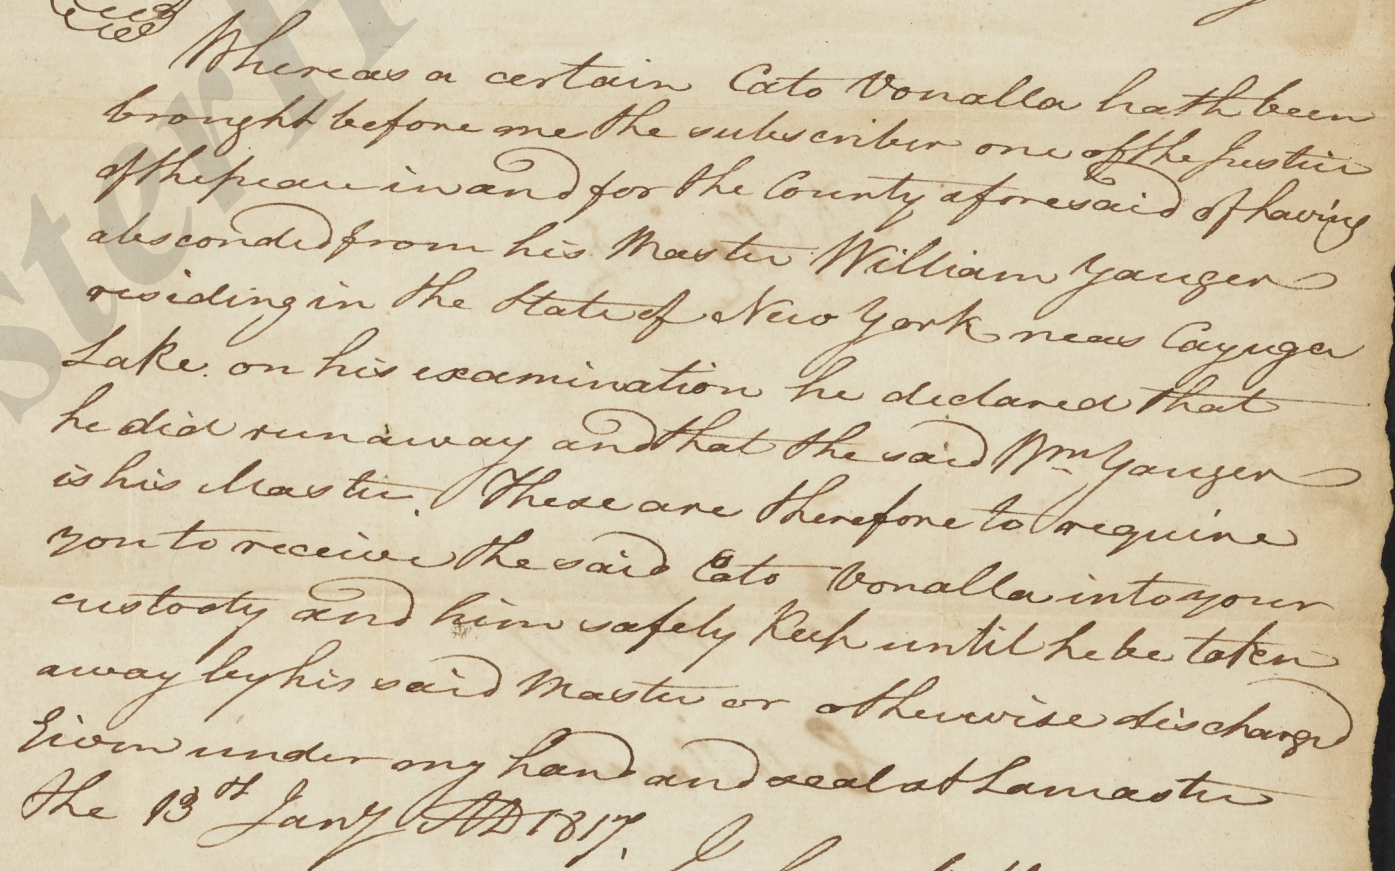 Whereas a certain Cato Vonalla hath been
brought before me the subscriber one of the Justices
of the peace in and for the County aforesaid of having
absconded from his Master William Yauger
residing in the State of New York near Cayuga
Lake. on his examination he declared that
he did runaway and that the said Wm Yauger
is his Master. These are therefore to require
you to receive the said Cato Vonalla into your
custody and him safely Keep until he be taken
away by his said Master or otherwise discharged
Given under my hand and seal at Lancaster
the 13th Jany AD 1817.